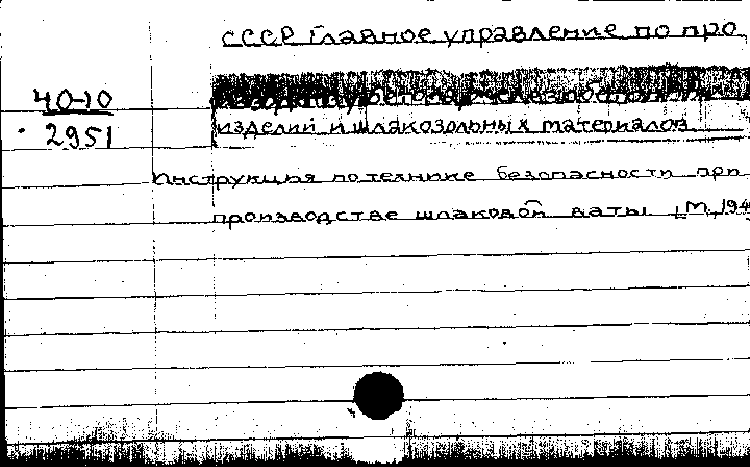 СССР Главное управление по про
40-10
бетона, железобетонных
2951
изделий и шлакозольных материалов
Инструкция по технике безопасности при
производстве шлаковой ваты М., 194